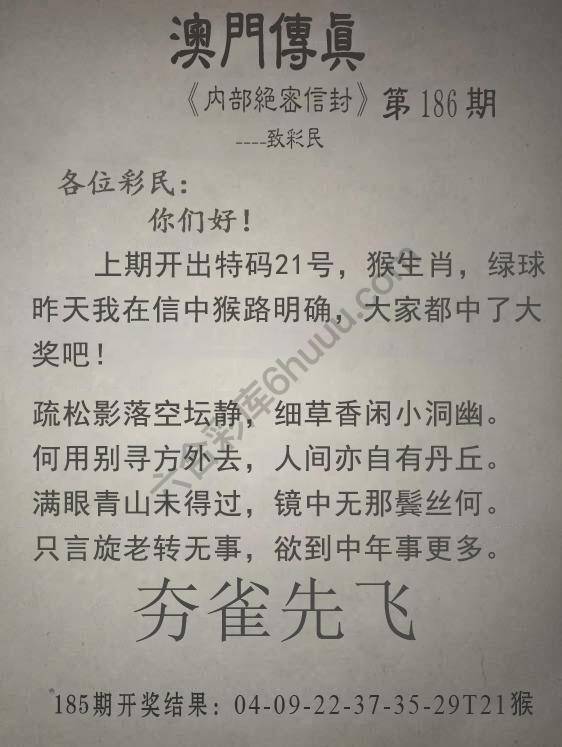 澳門傳眞
《内部絕密信封》第186期
----致彩民
各位彩民：
你们好！
上期开出特码21号，猴生肖，绿球
昨天我在信中猴路明确，大家都中了大
奖吧！
疏松影落空坛静，细草香闲小洞幽。
何用别寻方外去，人间亦自有丹丘。
满眼青山未得过，镜中无那鬓丝何。
只言旋老转无事，欲到中年事更多。
夯雀先飞
185期开奖结果：04-09-22-37-35-29T21猴
六合彩库6huuu.com